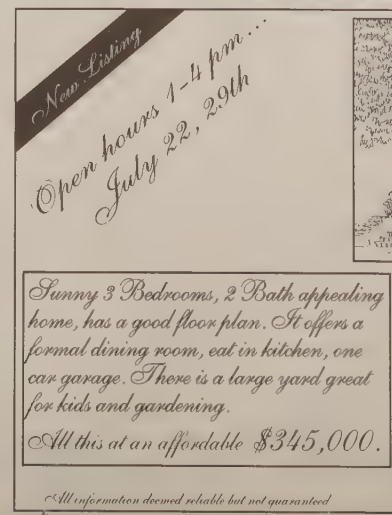 New Listing
Open hours 1-4 pm...
July 22, 29th
Sunny 3 Bedrooms, 2 Bath appealing
home, has a good floor plan. It offers a
formal dining room, eat in kitchen, one
car garage. There is a large yard great
for kids and gardening.
All this at an affordable $345,000.
All information deemed reliable but not guaranteed